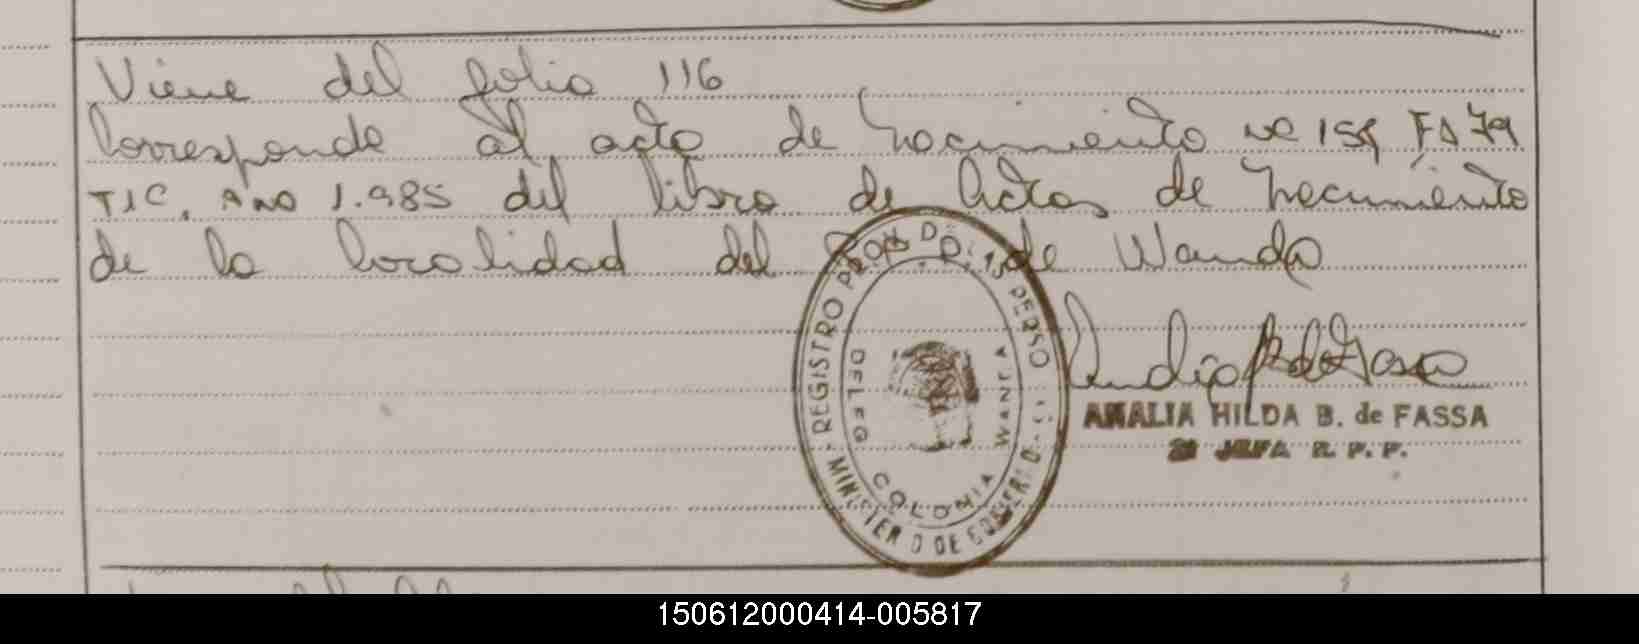 Viene del folio 116
Corresponde al acta de nacimiento Nº 159 Fº 79
T I C. Año 1.985 del libro de Actas de Nacimiento
de la localidad del de Wanda
REGISTRO PERSO
DELEG
COLONIA WANDA
MINISTERIO DE GOBIERNO
AMALIA HILDA B. de FASSA
2ª JEFA R. P. P.
150612000414-005817